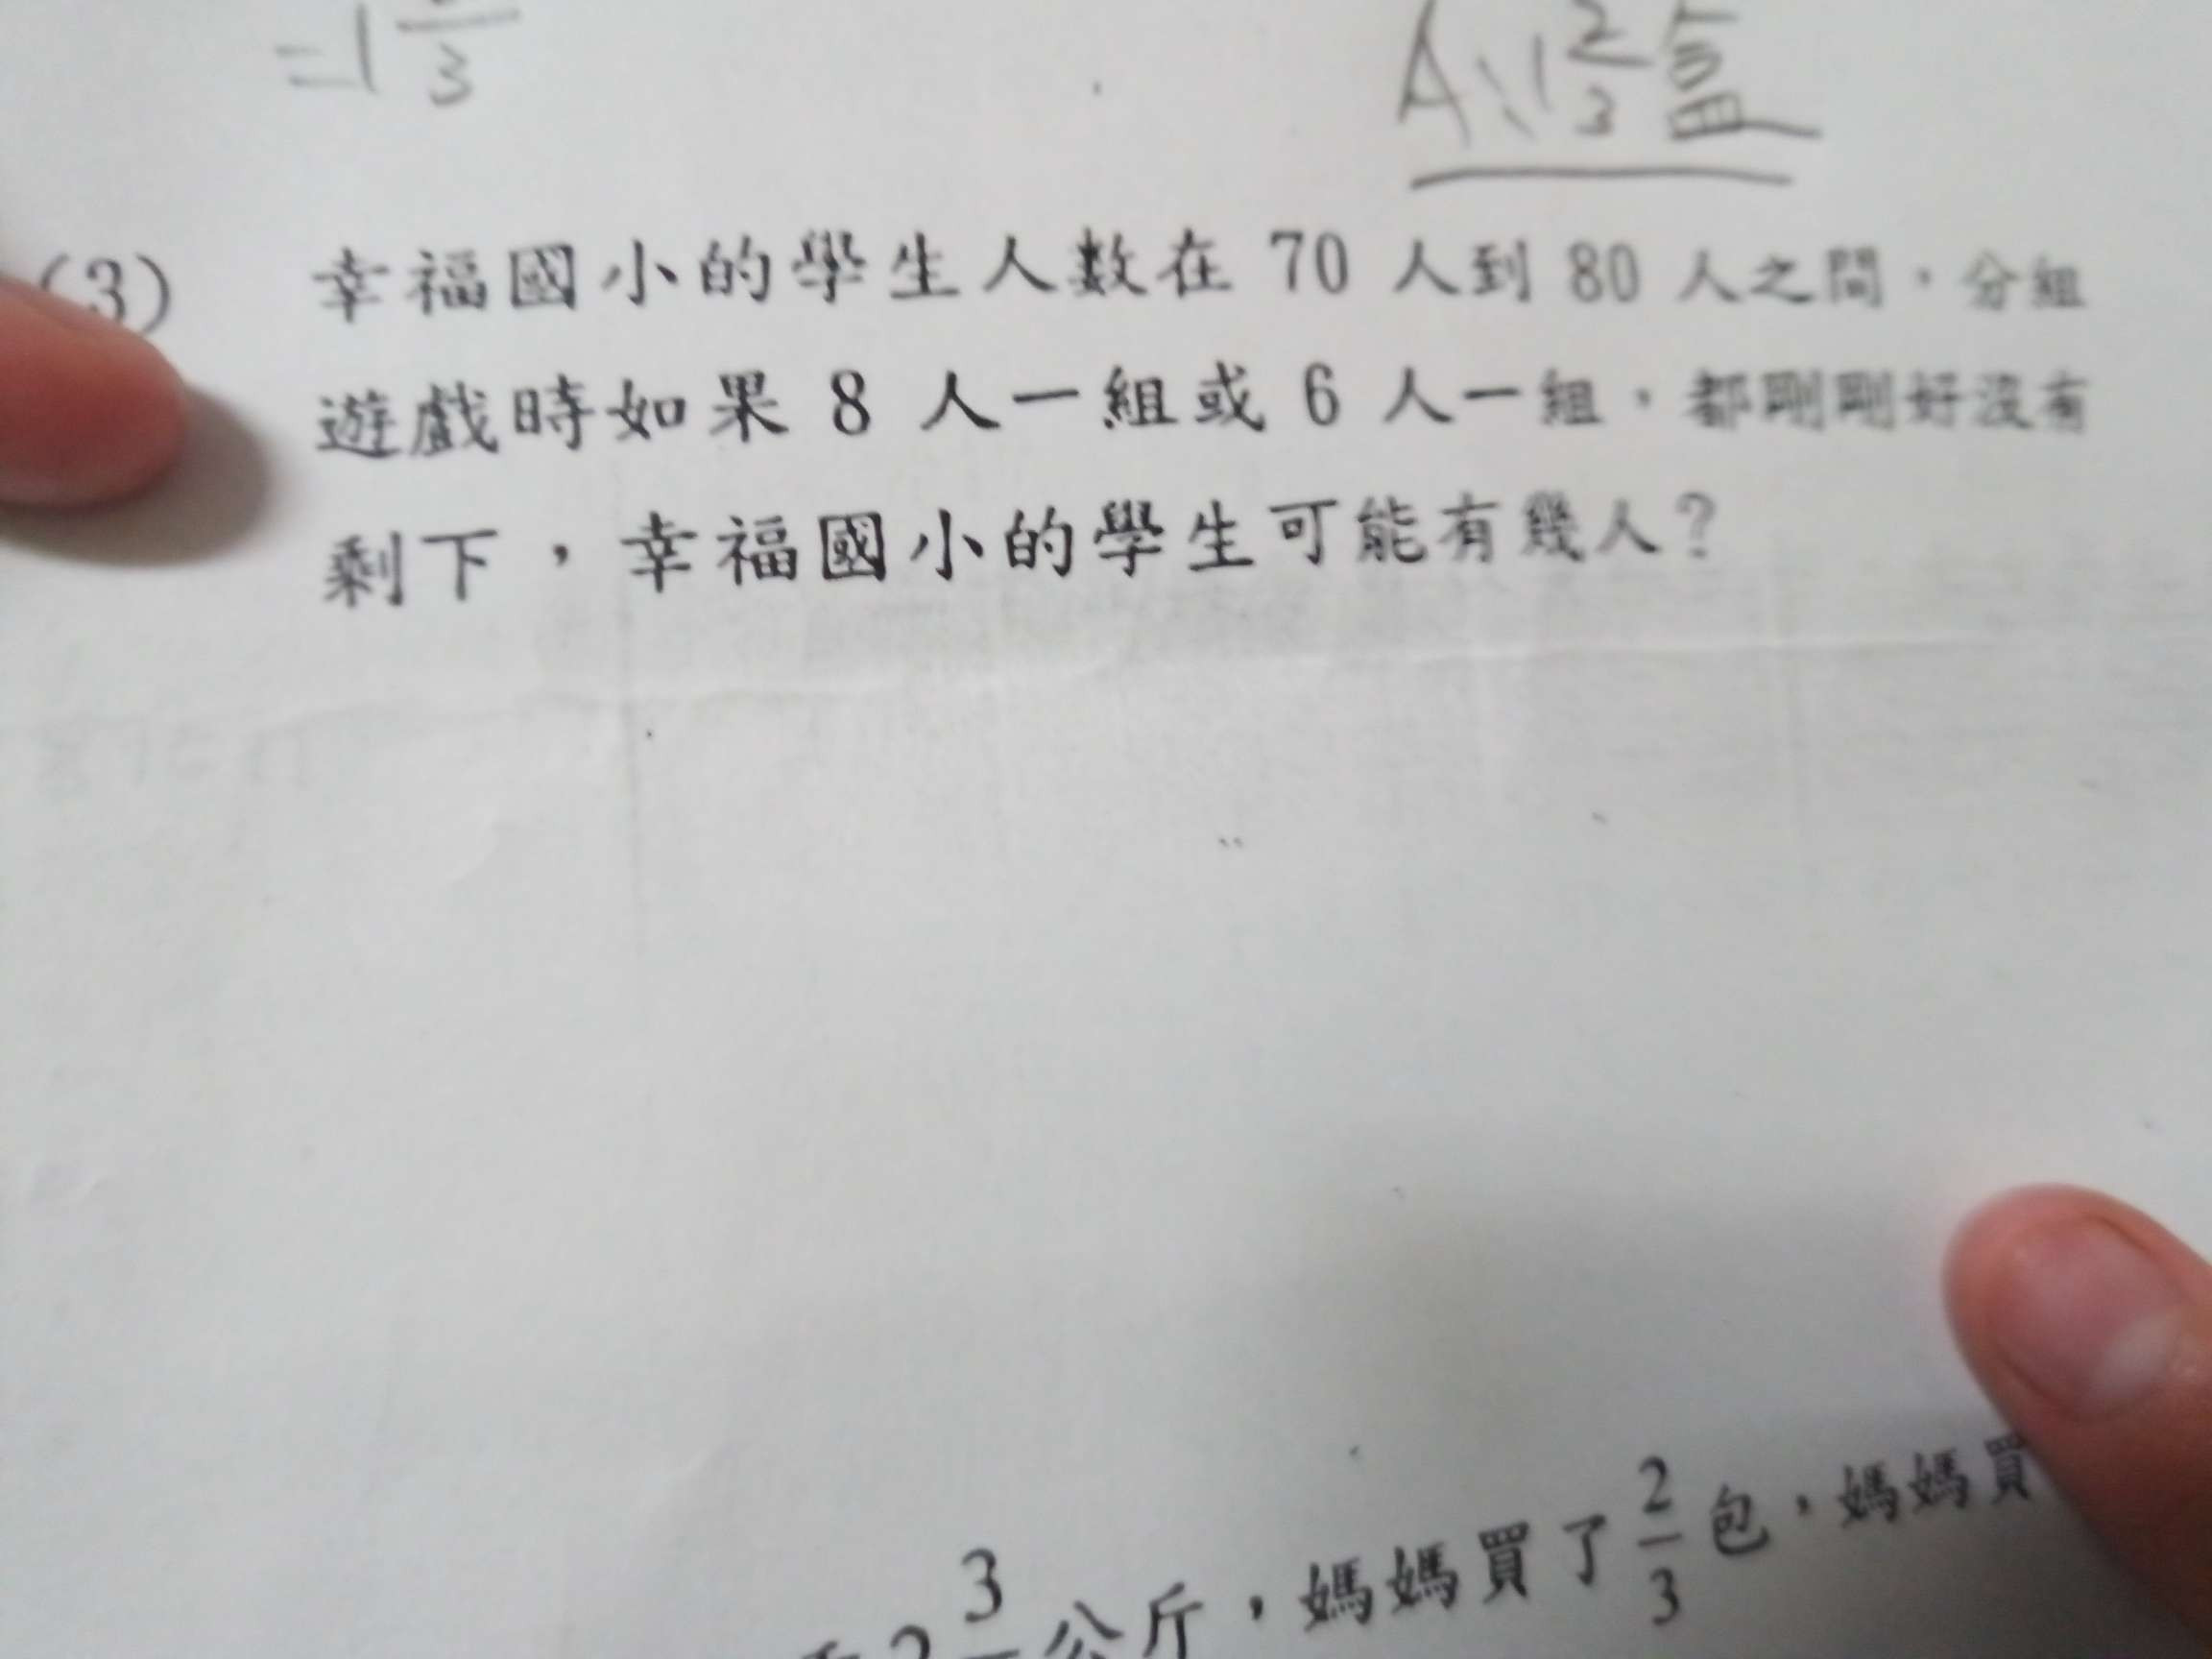 =1 3
A、1 2/3 盒
(3) 幸福國小的學生人數在 70 人到 80 人之間，分組
遊戲時如果 8 人一組或 6 人一組，都剛剛好沒有
剩下，幸福國小的學生可能有幾人？
3 公斤，媽媽買了 2/3 包，媽媽買